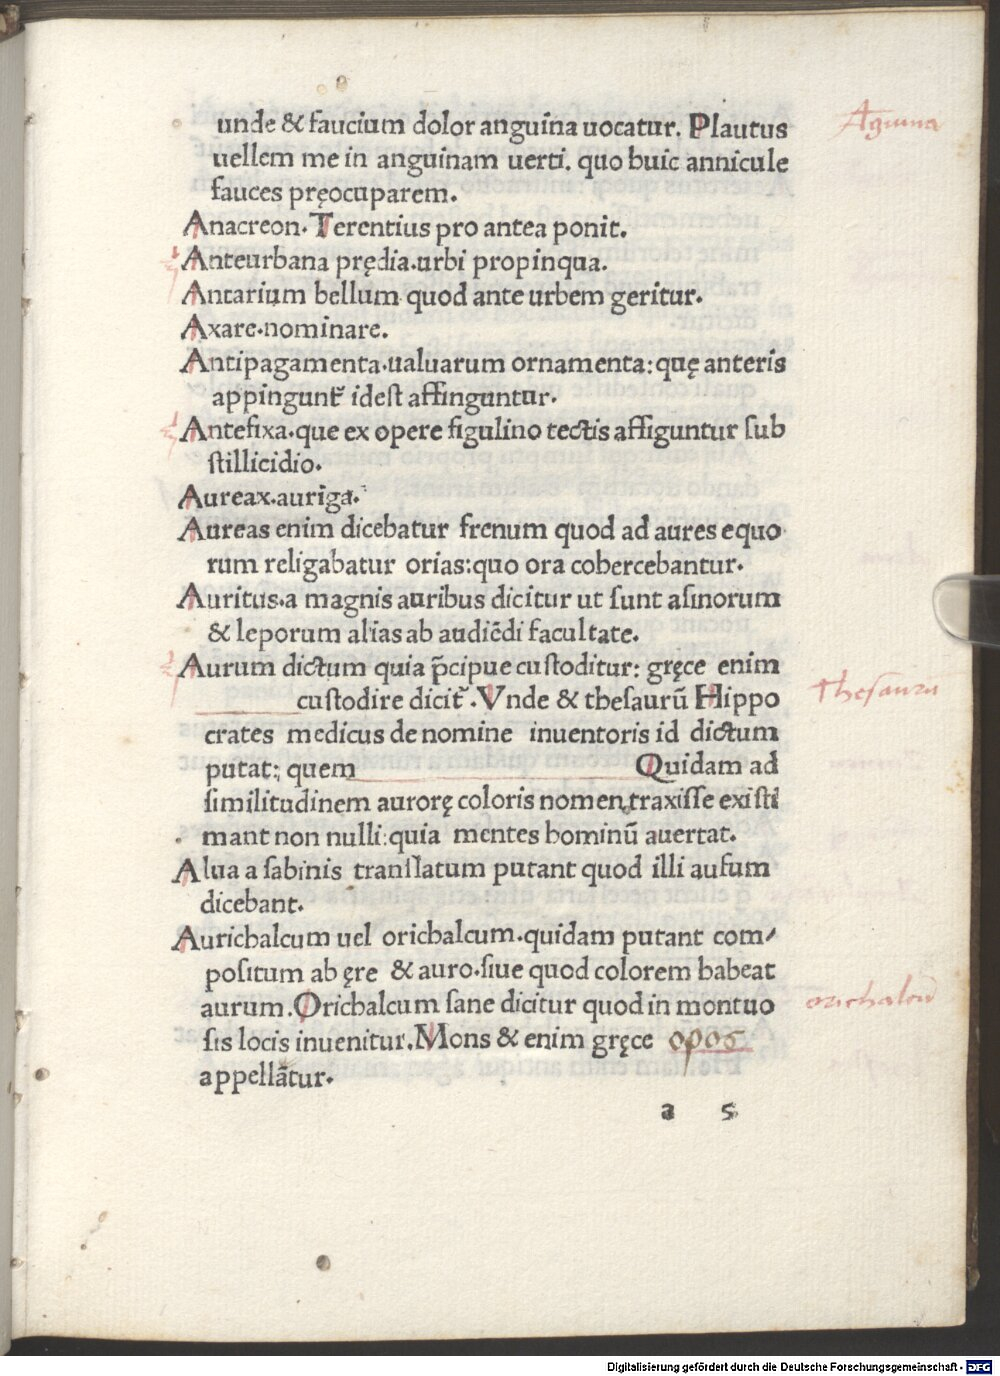 unde & faucium dolor anguina uocatur. Plautus
uellem me in anguinam uerti. quo huic annicule
fauces pręocuparem.
Anacreon. Terentius pro antea ponit.
Anteurbana prędia.urbi propinqua.
Antarium bellum quod ante urbem geritur.
Axare.nominare.
Antipagamenta.ualuarum ornamenta: quę anteris
appingunt᷑ idest affinguntur.
Antefixa.que ex opere figulino tectis affiguntur sub
stillicidio.
Aureax.auriga.
Aureas enim dicebatur frenum quod ad aures equo
rum religabatur orias:quo ora cohercebantur.
Auritus.a magnis auribus dicitur ut sunt asinorum
& leporum alias ab audiēdi facultate.
Aurum dictum quia p̄cipue custoditur: gręce enim
custodire dicit᷑ .Vnde & thesaurū Hippo
crates medicus de nomine inuentoris id dictum
putat: quem Quidam ad
similitudinem aurorę coloris nomen traxisse existi
mant non nulli:quia mentes hominū auertat.
Alua a sabinis translatum putant quod illi ausum
dicebant.
Aurichalcum uel orichalcum.quidam putant com/
positum ab ęre & auro.siue quod colorem habeat
aurum.Orichalcum sane dicitur quod in montuo
sis locis inuenitur.Mons & enim gręce opos
appellātur.
a 5
thesauru
orichalcū
Digitalisierung gefördert durch die Deutsche Forschungsgemeinschaft - DFG